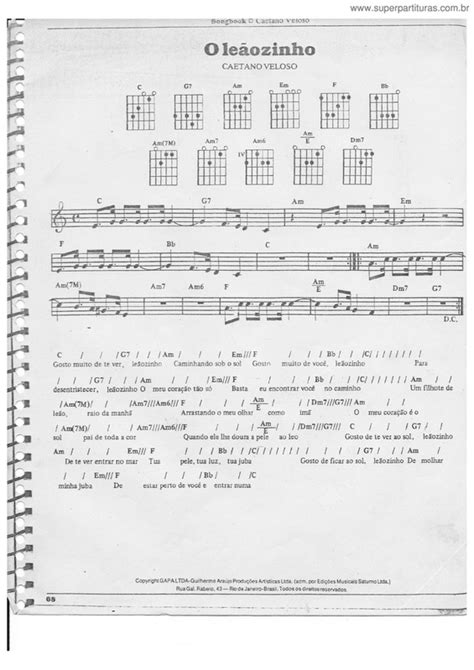 www.superpartituras.com.br
Songbook □ Caetano Veloso
O leãozinho
CAETANO VELOSO
C G7 Am Em F Bb
Am(7M) Am7 Am6 Am/E Dm7
IV
C G7 Am Em
F Bb C Am
Am(7M) Am7 Am6 F Am/E Dm7 G7
D.C.
C / / /G7 / / /Am / / /Em/// F / / /Bb / / /C/ / / / / / / / /
Gosto muito de te ver, leãozinho Caminhando sob o sol Gosto muito de você, leãozinho Para
/ / /G7 / / /Am / / /Em/// F / / / Bb / / /C/ / / / / /
desentristecer, leãozinho O meu coração tão só Basta eu encontrar você no caminho Um filhote de
/ Am / / / Am(7M)/ / /Am7///Am6/// F / / / Am/E / / /Dm7///G7/// Am / /
leão, raio da manhã Arrastando o meu olhar como imã O meu coração é o
/ Am(7M)/ / /Am7///Am6/// F / / / Am/E / / / Dm7///G7///C / / / G7/ / /
sol pai de toda a cor Quando ele lhe doura a pele ao leo Gosto de te ver ao sol, leãozinho
Am / / / Em/// F / / / Bb / / /C/ / / / / / / / / / / /G7 / / / Am /
De te ver entrar no mar Tua pele, tua luz, tua juba Gosto de ficar ao sol, leãozinho De molhar
/ / Em/// F / / / Bb / / /C
minha juba De estar perto de você e entrar numa
Copyright GAPA LTDA-Guilherme Araújo Produções Artísticas Ltda. (adm. por Edições Musicais Saturno Ltda.)
Rua Gal. Rabelo, 43 — Rio de Janeiro-Brasil. Todos os direitos reservados.
68